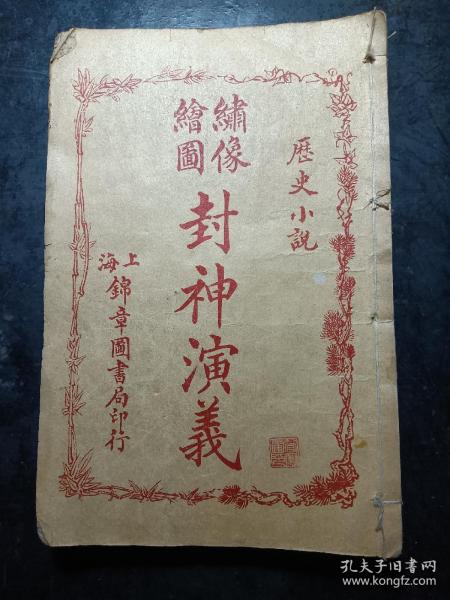 歷史小說
繡像
繪圖
封神演義
上海
錦章圖書局印行
孔夫子旧书网
www.kongfz.com